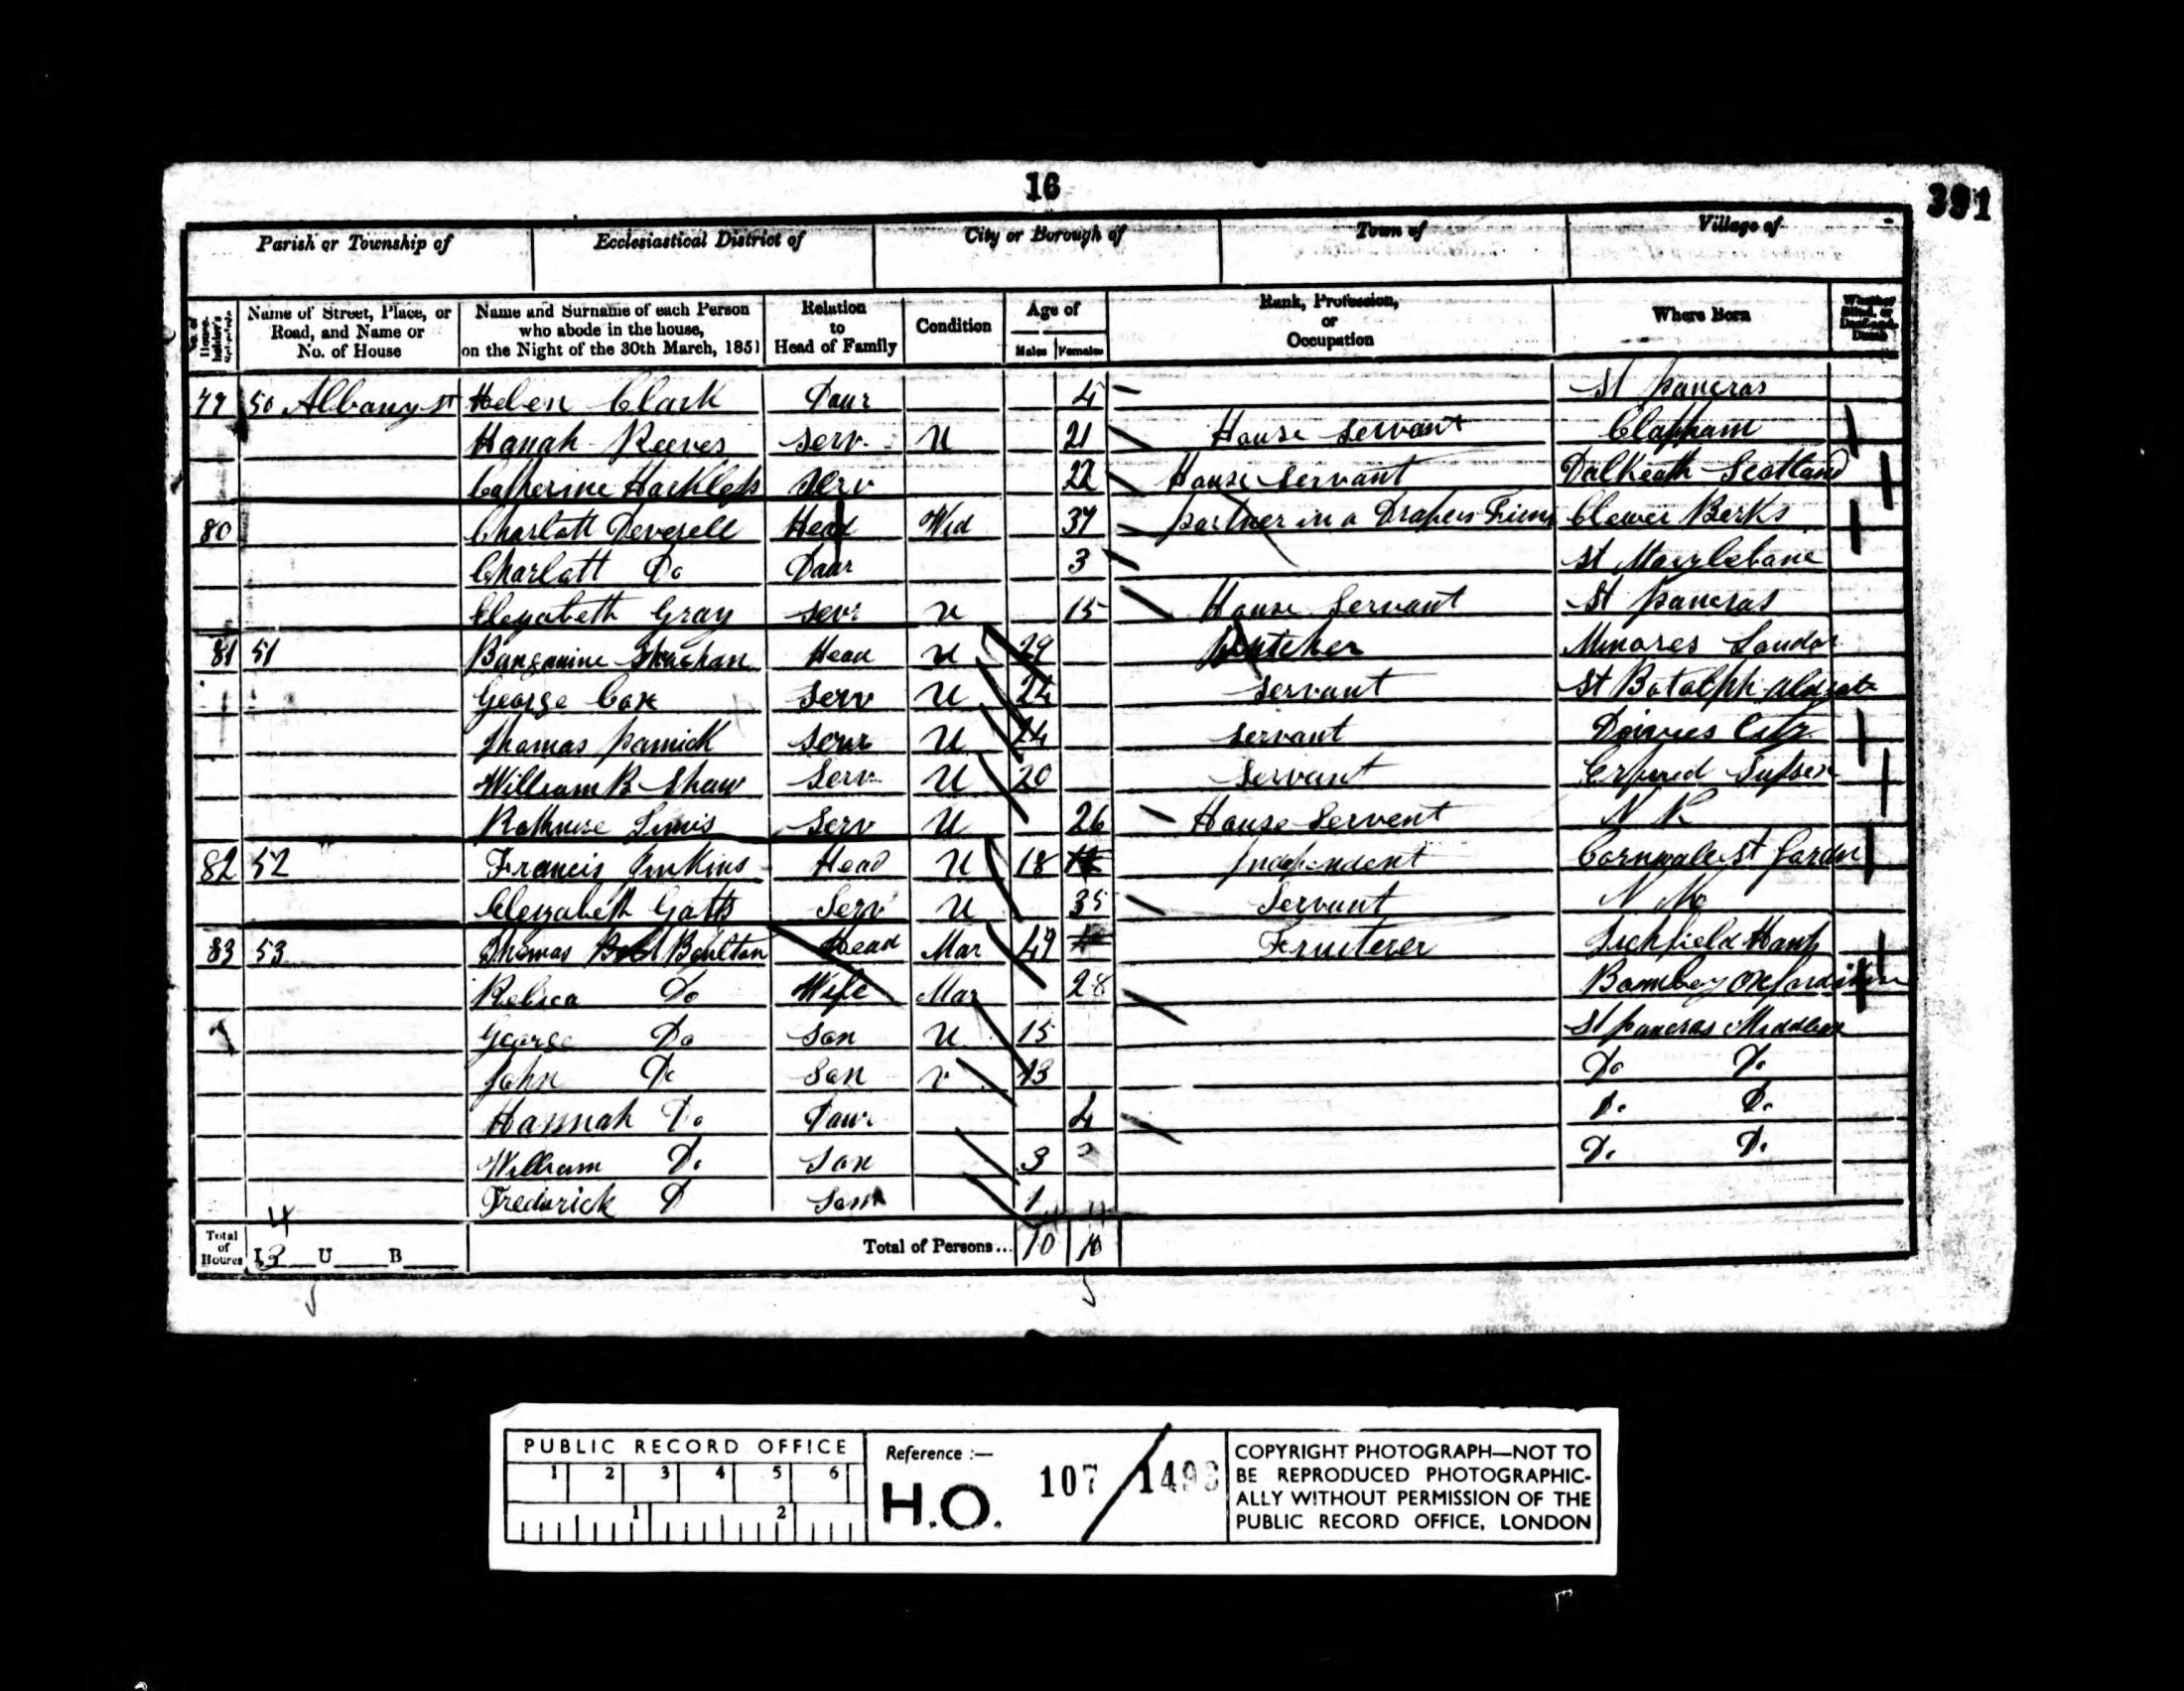 16
391
Parish or Township of Ecclesiastical District of City or Borough of Town of Village of
No. of House-holder's Schedule Name of Street, Place, or Road, and Name or No. of House Name and Surname of each Person who abode in the house, on the Night of the 30th March, 1851 Relation to Head of Family Condition Age of Males Females Rank, Profession, or Occupation Where Born Whether Blind, or Deaf-and-Dumb
79 50 Albany st Helen Clark Daur 4 St Pancras
Hanah Reeves Serv U 21 House Servant Clapham
Catherine Serv 22 House Servant Dalkeath Scotland
80 Charlott Deverell Head Wid 37 partner in a Drapers Firm Clewer Berks
Charlatt Do Daur 3 St Marylebane
Elezabeth Gray Serv U 15 House Servant St Pancras
81 51 Head U 29 Butcher Minores London
George Cox Serv U 24 Servant St Botolph Aldgate
Thomas Serv U 24 Servant
William B Shaw Serv U 20 Servant Sussex
Serv U 26 House Servent N K
82 52 Francis Jenkins Head U 18 Independent
Elezabeth Gatts Serv U 35 Servant N K
83 53 Thomas Boulton Head Mar 49 Fruiterer Hants
Rebeca Do Wife Mar 28
George Do Son U 15 St Pancras Middlesex
John Do Son U 13 Do Do
Hannah Do Daur 4 Do Do
William Do Son 3 Do Do
Frederick D Son 1
Total of Houses 4 I 3 U B Total of Persons... 10 10
5
PUBLIC RECORD OFFICE
1 2 3 4 5 6
1 2
Reference :—
H.O. 107 / 1493
COPYRIGHT PHOTOGRAPH—NOT TO
BE REPRODUCED PHOTOGRAPHIC-
ALLY WITHOUT PERMISSION OF THE
PUBLIC RECORD OFFICE, LONDON